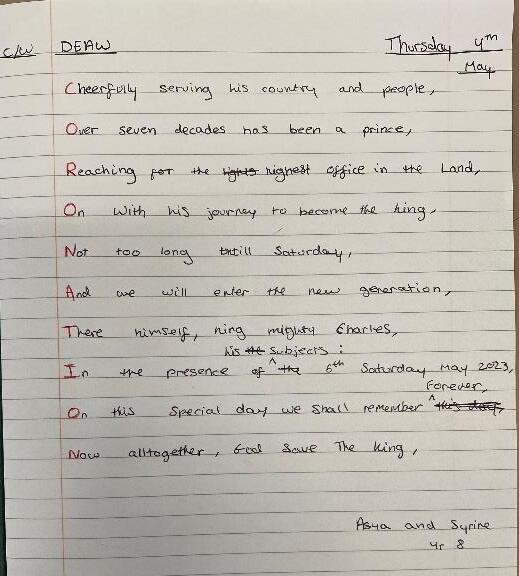 C/W DEAW Thursday 4th
May
Cheerfully serving his country and people,
Over seven decades has been a prince,
Reaching for the highest office in the Land,
On with his journey to become the king,
Not too long till Saturday,
And we will enter the new generation,
There himself, king mighty Charles,
his subjects :
In the presence of ^ the 6th Saturday May 2023,
forever,
On this special day we shall remember ^ this day,
Now alltogether, God save The king,
Asya and Syrine
Yr 8